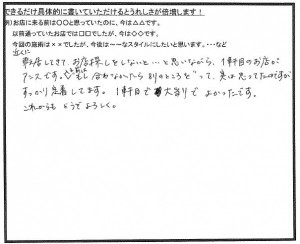 できるだけ具体的に書いていただけるとうれしさが倍増します！
例)お店に来る前は〇〇と思っていたのに、今は△△です。
以前通っていたお店では□□でしたが、今は◇◇です。
今回の施術は××でしたが、今後は〜〜なスタイルにしたいと思います。…など
近くに
転居してきて、お店探しをしないと…と思いながら、1軒目のお店が
アンスです。合わなかったら別のところを…って、実は思ってたのですが、
すっかり定着してます。1軒目で大当りでよかったです。
これからもどうぞよろしく。